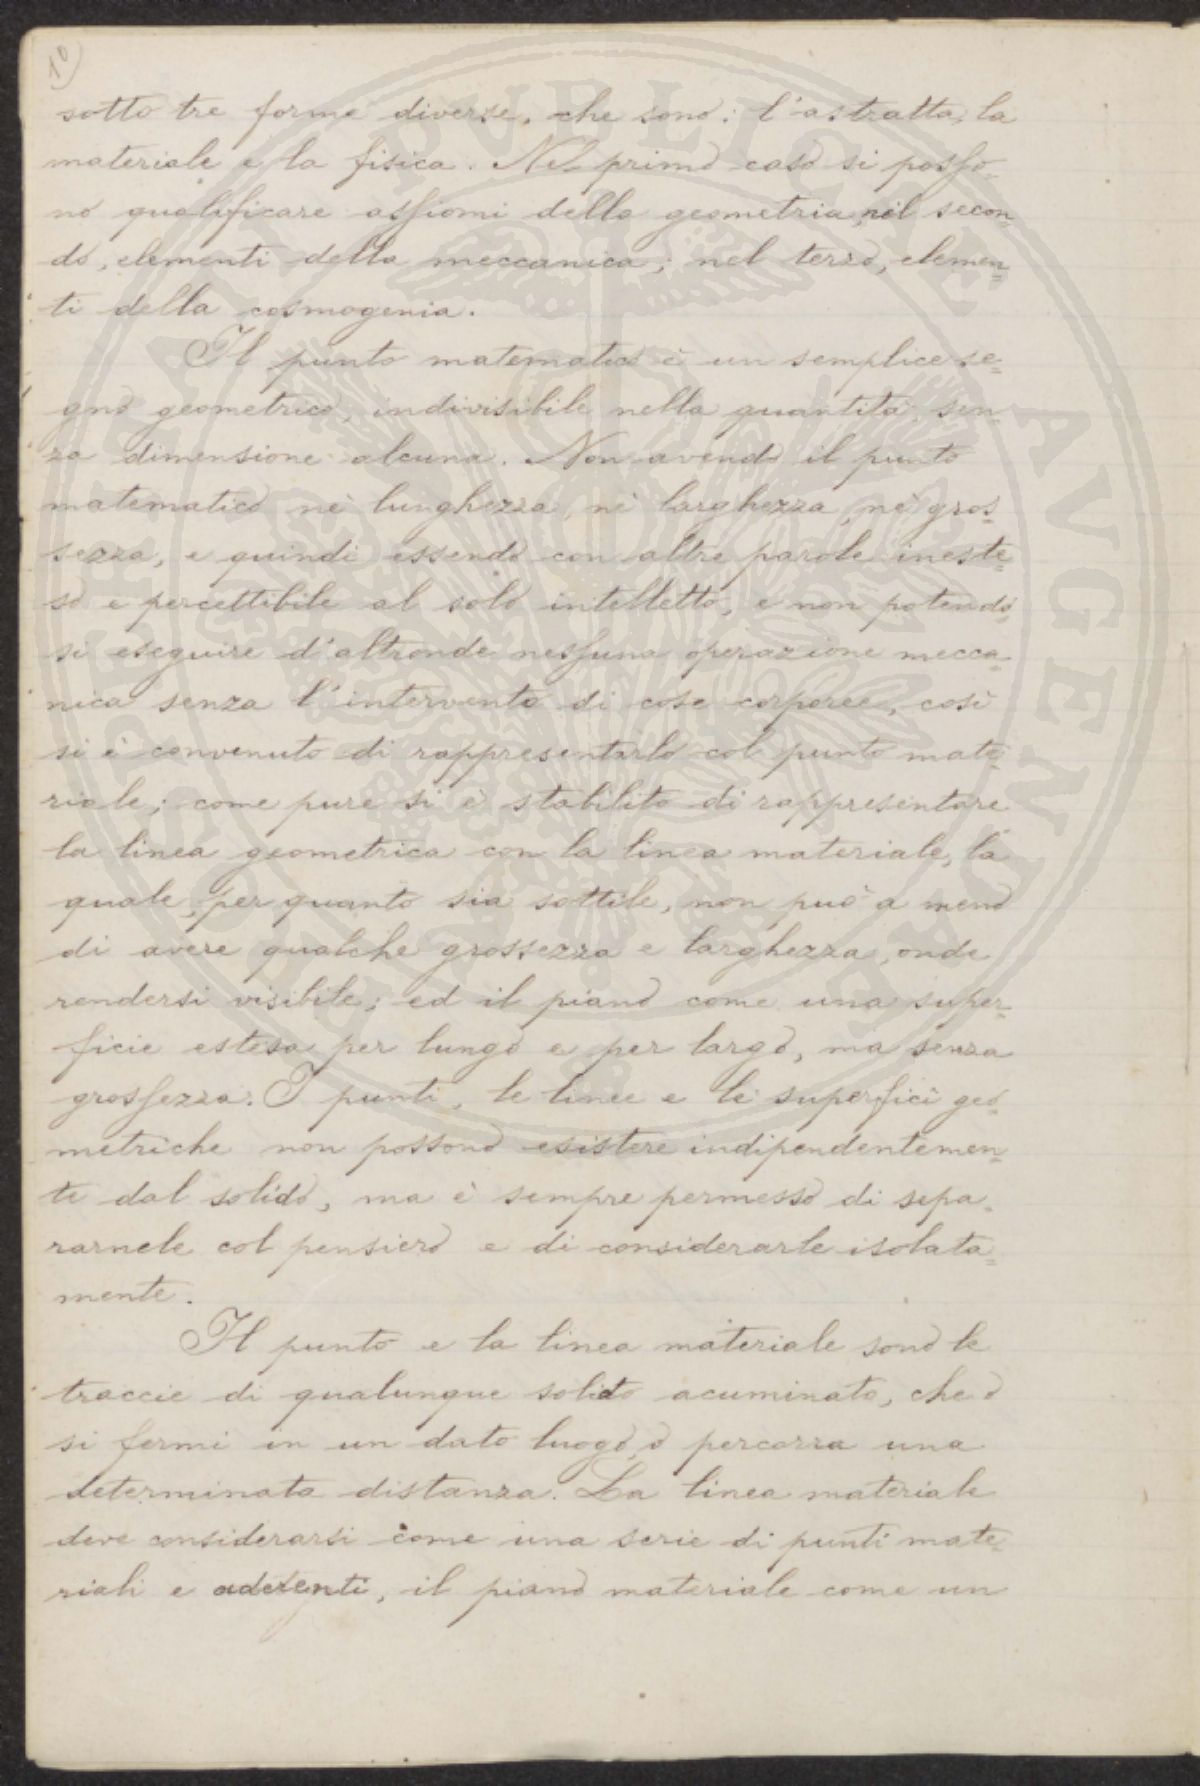 10
sotto tre forme diverse, che sono: l'astratta, la
materiale e la fisica. Nel primo caso si posso-
no qualificare assiomi della geometria, nel secon-
do, elementi della meccanica; nel terzo, elemen=
ti della cosmogenia.
Il punto matematico è un semplice se=
gno geometrico, indivisibile nella quantità, sen-
za dimensione alcuna. Non avendo il punto
matematico nè lunghezza, nè larghezza, nè gros=
sezza, e quindi essendo con altre parole ineste=
so e percettibile al solo intelletto, e non potendo
si eseguire d'altronde nessuna operazione mecca=
nica senza l'intervento di cose corporee, così
si è convenuto di rappresentarlo col punto mate=
riale; come pure si è stabilito di rappresentare
la linea geometrica con la linea materiale, la
quale, per quanto sia sottile, non può a meno
di avere qualche grossezza e larghezza, onde
rendersi visibile; ed il piano come una super=
ficie estesa per lungo e per largo, ma senza
grossezza. I punti, le linee e le superfici geo-
metriche non possono esistere indipendentemen=
te dal solido, ma è sempre permesso di sepa=
rarnele col pensiero e di considerarle isolata=
mente.
Il punto e la linea materiale sono le
traccie di qualunque solido acuminato, che o
si fermi in un dato luogo, o percorra una
determinata distanza. La linea materiale
deve considerarsi come una serie di punti mate=
riali e aderenti, il piano materiale come un
PVBLICAE AVGENDAE